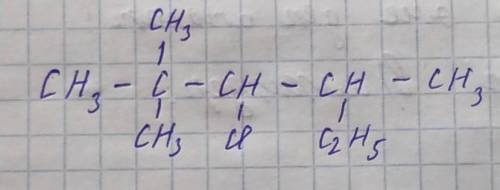 CH₃
CH₃ - C - CH - CH - CH₃
CH₃ Cl C₂H₅